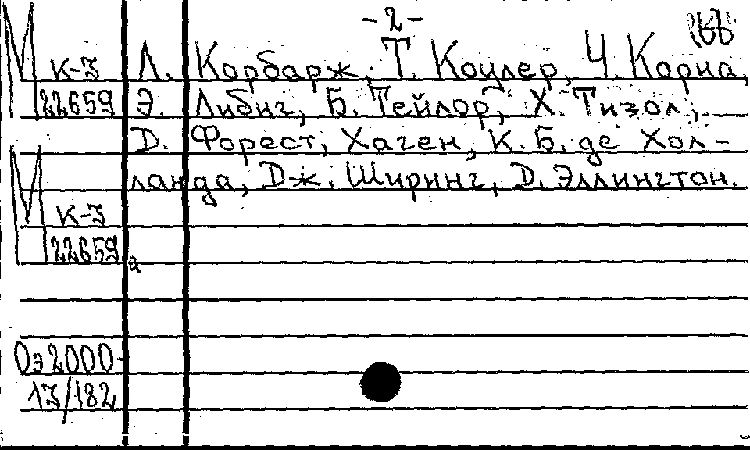 -2-
М К-3 Л. Корбарж, Т. Коулер, Ч. Кориа,
22659 Э. Либиг, Б. Тейлор, Х. Тизол,
Д. Форест, Хаген, К. Б. де Хол-
ланда, Дж. Ширинг, Д. Эллингтон.
М К-3
22659 а
Оэ2000-
13/182